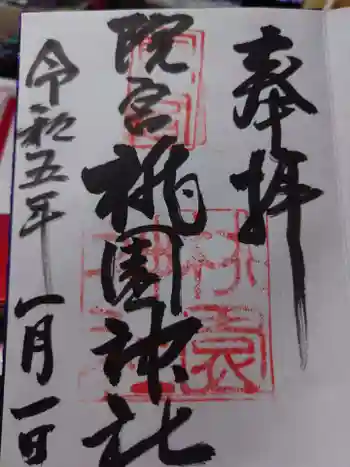 奉拝
院宮
桃園神社
令和五年一月一日